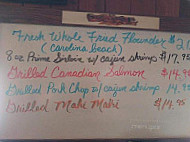 Fresh Whole Fried Flounder $21
(carolina beach)
8 oz Prime Sirloin w/ cajun shrimp $17.95
Grilled Canadian Salmon $14.95
Grilled Pork Chop w/ cajun shrimp 14.95
Grilled Mahi Mahi $14.95